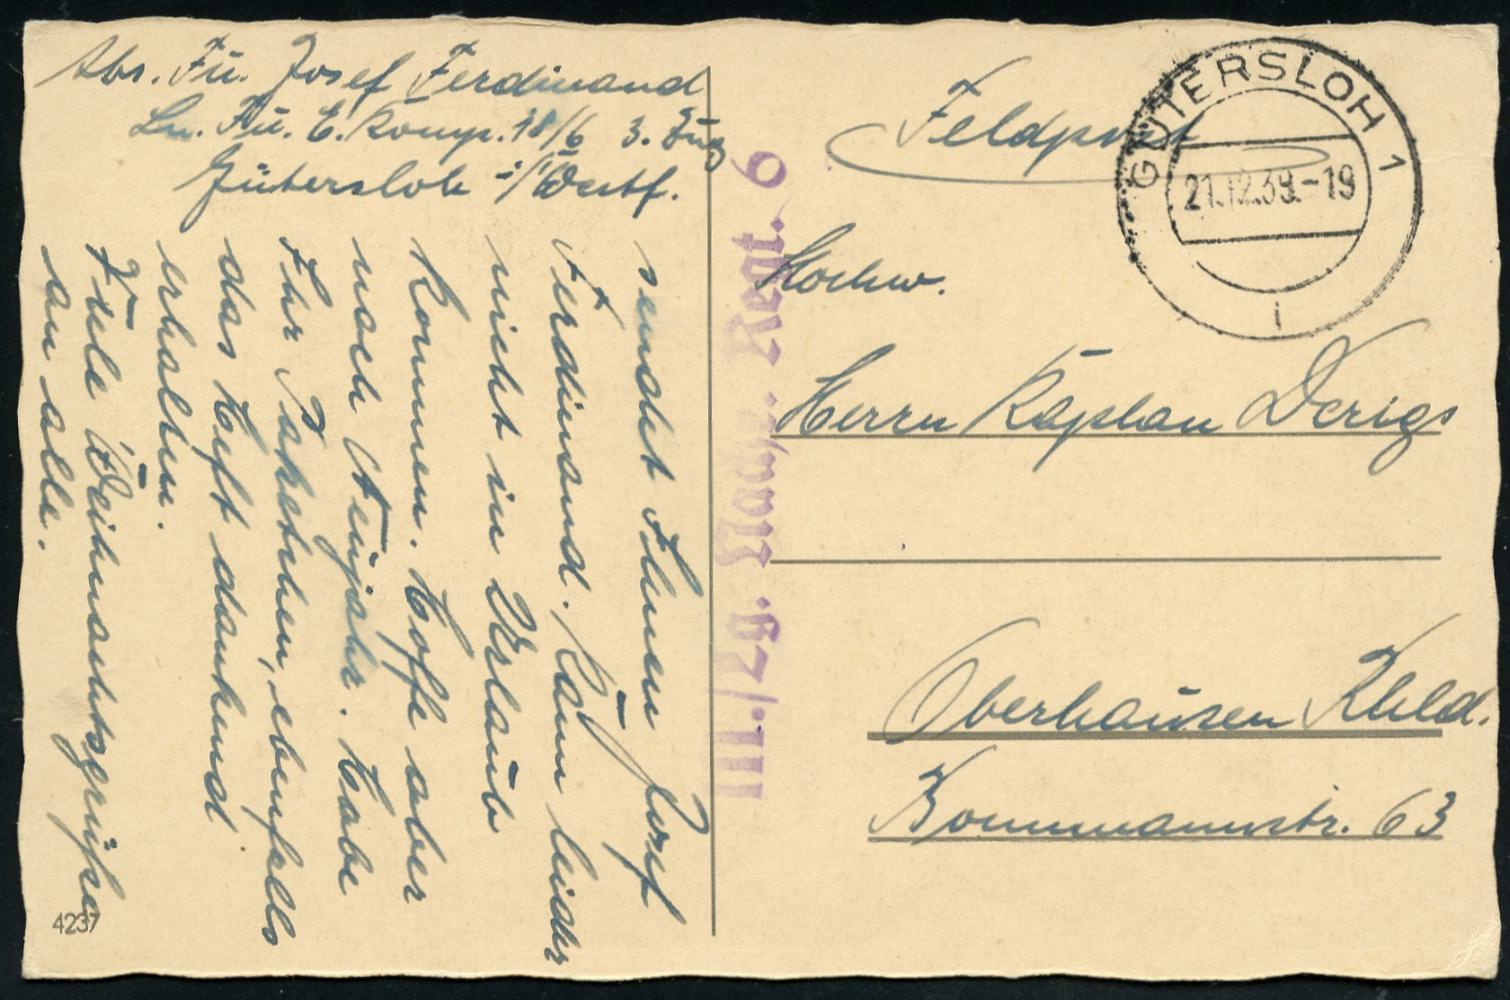 Abs. Fu. Josef Ferdinand
Ln. Fu. E. Komp. 18/6 3. Zug
Gütersloh i/Westf.
sendet Ihnen Josef
Ferdinand. Kann leider
nicht in Urlaub
kommen. Hoffe aber
nach Neujahr. Habe
Ihr Paketchen, ebenfalls
das Heft dankend
erhalten.
Viele Weihnachtsgrüße
an alle.
4237
III./Lg. Nachr. Regt. 6
Feldpost
GÜTERSLOH 1
21.12.39.-19
i
Hochw.
Herrn Kaplan Derigs
Oberhausen Rhld.
Bonnmannstr. 63